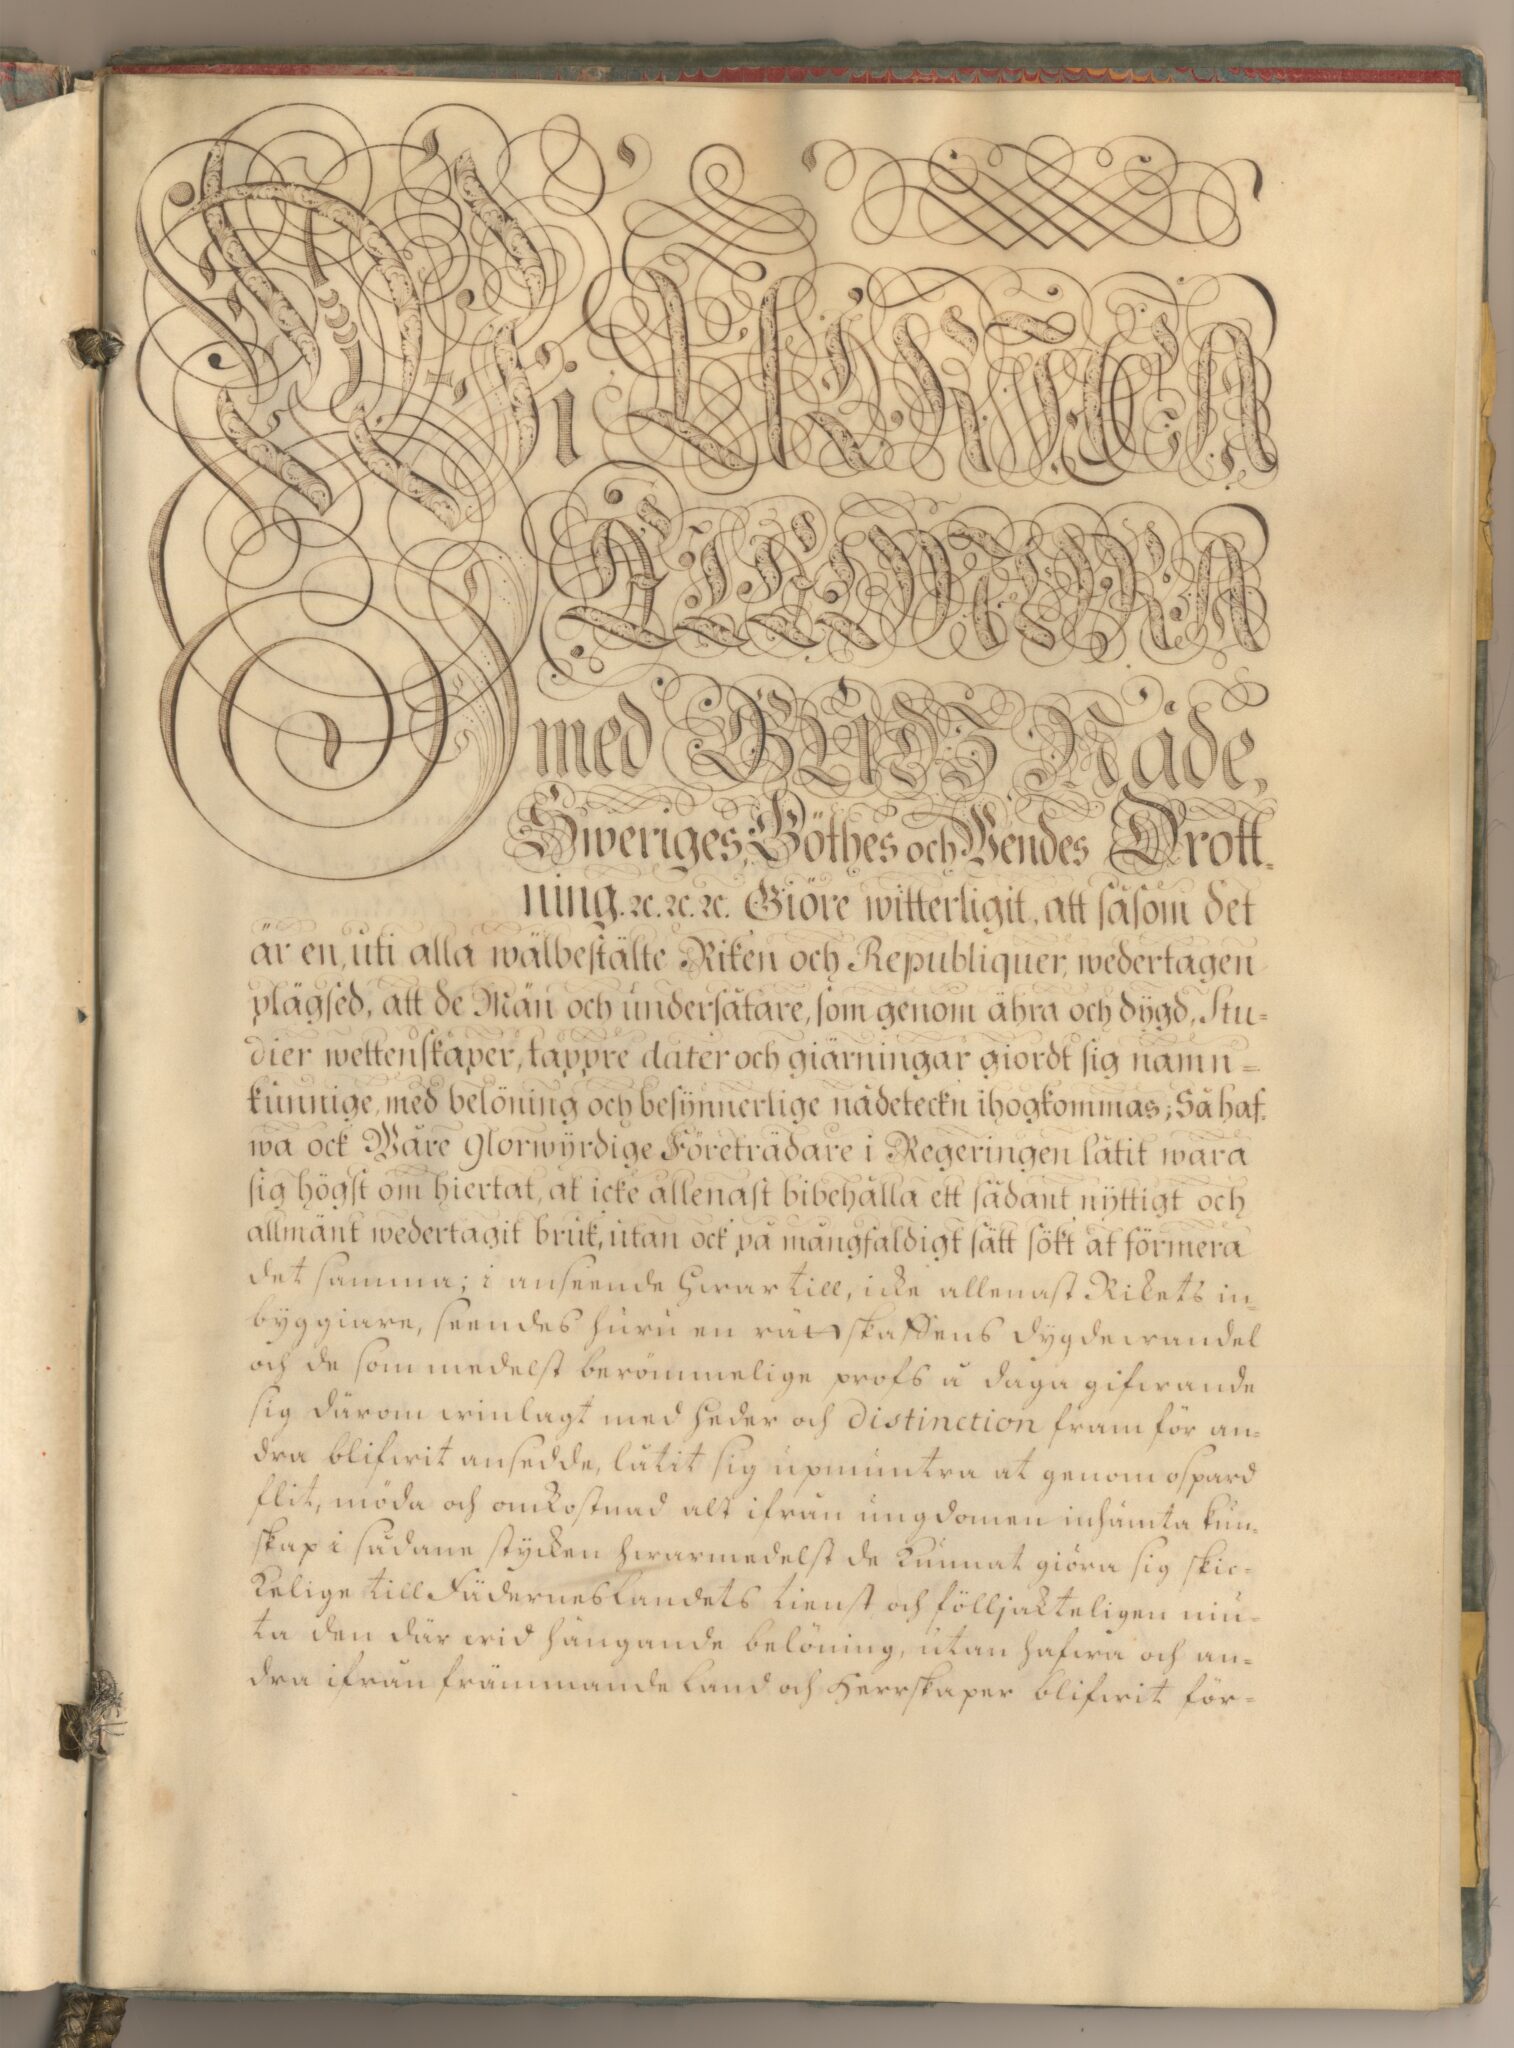 Wi ULRICA
ELEONORA
med GUDZ Nåde,
Sweriges, Göthes och Wendes Drott-
ning. ꝛc. ꝛc. ꝛc. Giöre witterligit, att såsom det
är en, uti alla wälbestälte Riken och Republiquer, wedertagen
plägsed, att de Män och undersåtare, som genom ähra och dygd, Stu-
dier wettenskaper, tappre dater och giärningar giordt sig namn-
kunnige, med belöning och besÿnnerlige nådeteckn ihogkommas; Så haf-
wa ock Wåre Glorwÿrdige Företrädare i Regeringen låtit wara
sig högst om hiertat, at icke allenast bibehålla ett sådant nÿttigt och
allmänt wedertagit bruk, utan ock på mångfaldigt sätt sökt at förmera
det samma; i anseende hwartill, icke allenast Rikets in-
byggiare, seendes huru en rättskaffens dygdewandel
och de som medelst berömmelige profs å daga gifwande
sig därom winlagt med heder och distinction framför an-
dra blifwit ansedde, låtit sig upmuntra at genom ospard
flit, möda och omkostnad alt ifrån ungdomen inhämta kun-
skap i sådane stycken hwarmedelst de kunnat giöra sig skic-
kelige till Fäderneslandets tienst och fölljakteligen niu-
ta den där wid hängande belöning, utan hafwa och an-
dra ifrån främmande Land och Herrskaper blifwit för-